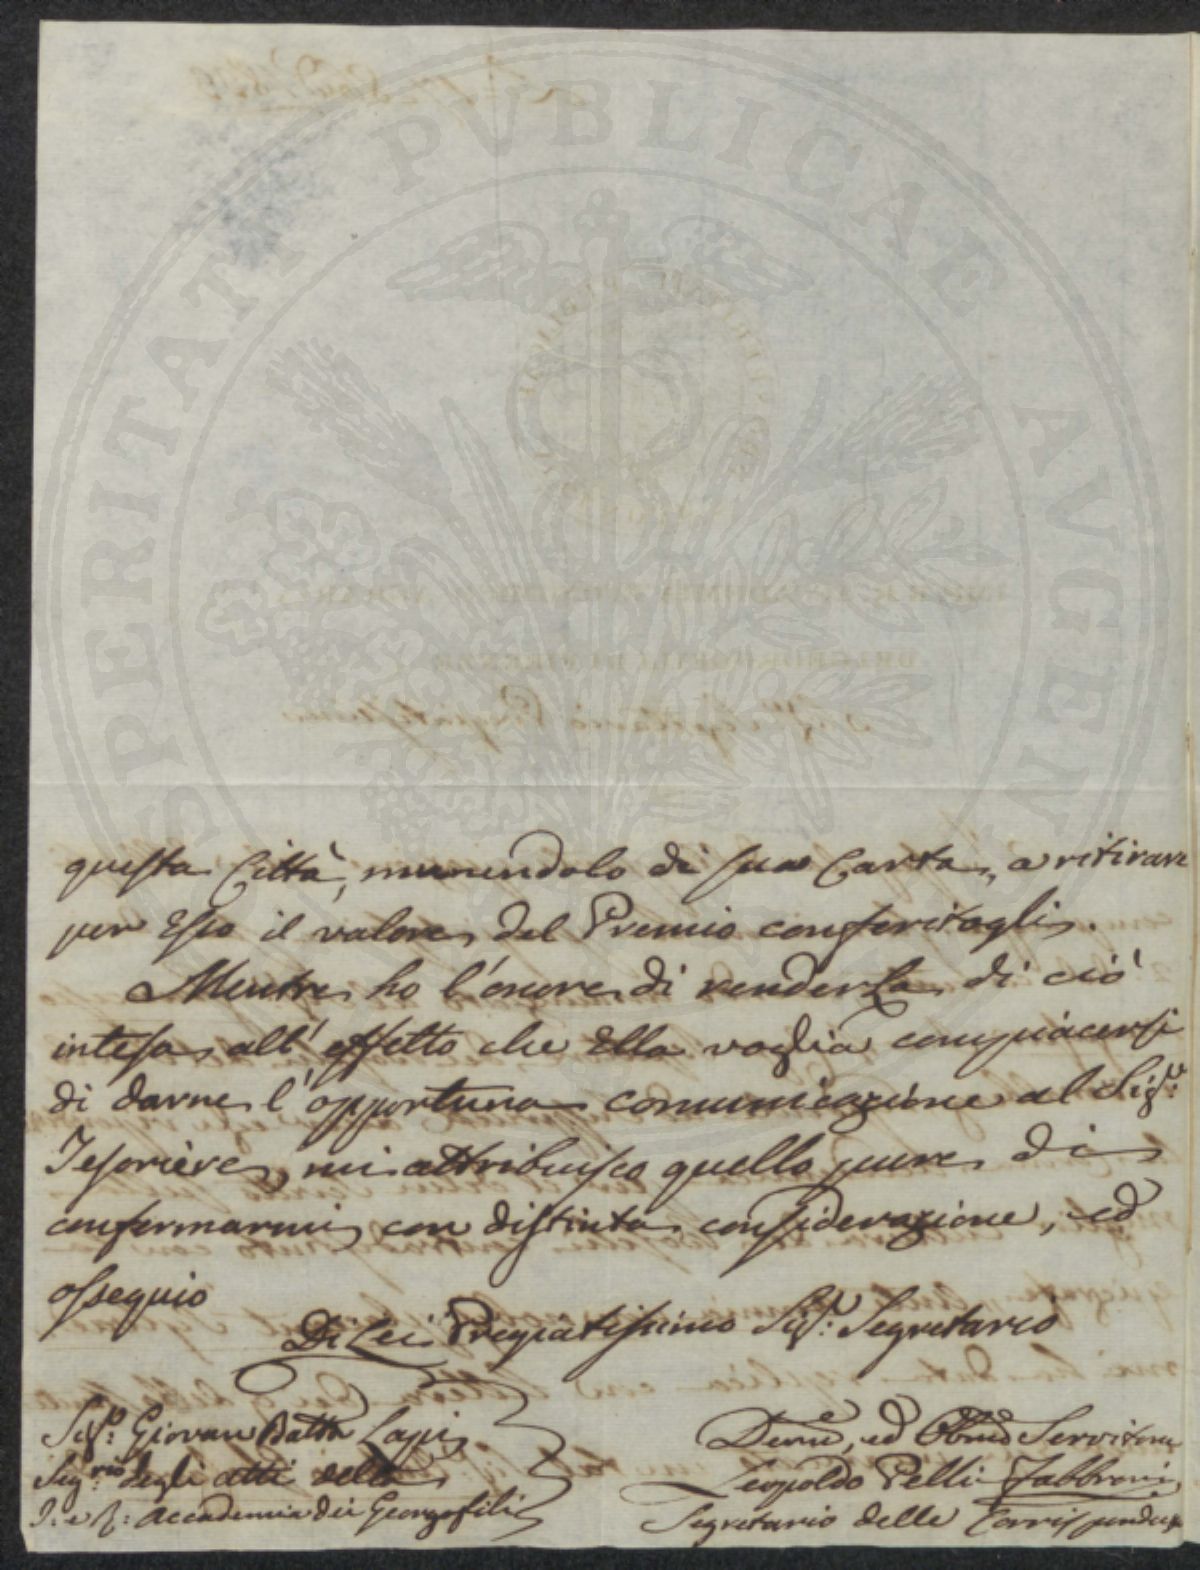 PROSPERITATI PUBLICAE AUGENDAE
questa Città, munendolo di sua Carta, a ritirare
per Esso il valore del Premio conferitogli.
Mentre ho l'onore di renderLa di ciò
intesa all'effetto che Ella voglia compiacersi
di darne l'opportuna comunicazione al Sigr:
Tesoriere, mi attribuisco quello pure di
confermarmi con distinta considerazione, ed
ossequio
Di Lei Pregiatissimo Sigr: Segretario
Sigr: Giovan Batta Lapi
Segrio degli atti della
I: e R: Accademia dei Georgofili
Devmo, ed Obbmo Servitore
Leopoldo Pelli Fabbroni
Segretario delle Corrispondenze